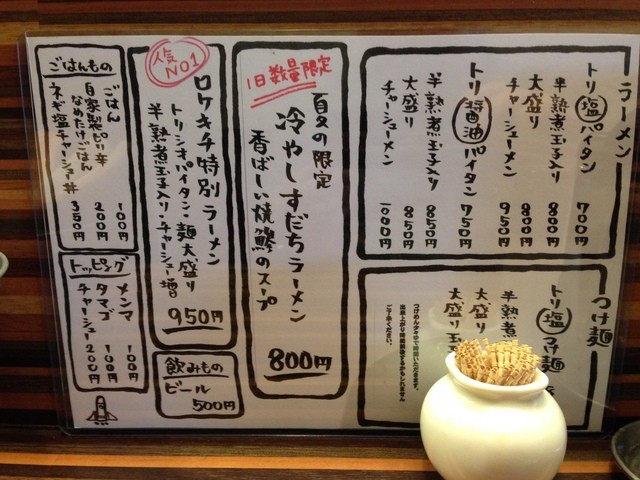 ラーメン
トリ塩パイタン 700円
半熟煮玉子入り 800円
大盛り 800円
チャーシューメン 950円
トリ醤油パイタン 750円
半熟煮玉子入り 850円
大盛り 850円
チャーシューメン 1000円
つけ麺
トリ塩つけ麺
半熟煮
大盛り
大盛り玉
つけめんタキゆで時間いただきます。
出来上がり時間前後するかもしれません
ご了承ください。
1日数量限定
夏の限定
冷やしすだちラーメン
香ばしい焼鯵のスープ
800円
人気NO1
ロケキチ特別ラーメン
トリシオパイタン・麺大盛り
半熟煮玉子入り・チャーシュー増
950円
飲みもの
ビール
500円
ごはんもの
ごはん 100円
自家製ピリ辛
なめたけごはん 200円
ネギ塩チャーシュー丼 350円
トッピング
メンマ 100円
タマゴ 100円
チャーシュー 200円